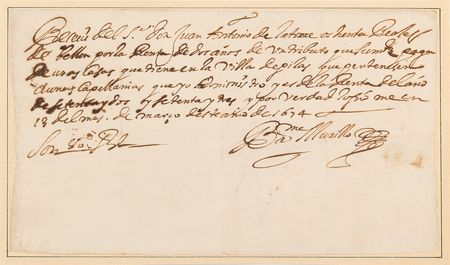 Recivi del S.r don Juan Antonio de ochenta Reales
de vellon por la Renta de dos años de un tributo que
de unas casas que tiene en la villa de pilas que pertenecen
a unas Capellanias que yo administro y es de la Renta del año
de setenta y dos y setenta y tres y por verdad lo firme en
13 del mes de março deste año de 1674
Son
B.me Murillo